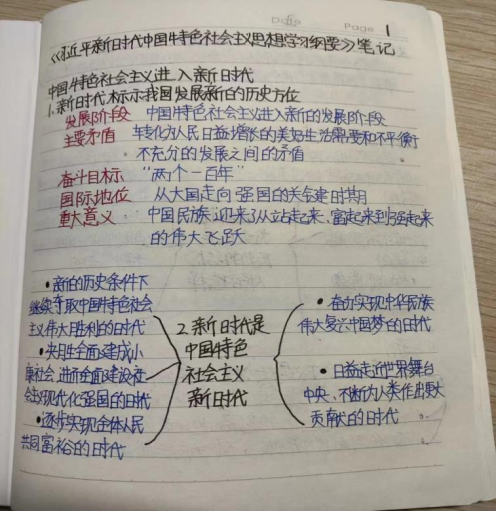 Date Page 1
《习近平新时代中国特色社会主义思想学习纲要》笔记
中国特色社会主义进入新时代
1、新时代标示我国发展新的历史方位
发展阶段 中国特色社会主义进入新的发展阶段
主要矛盾 转化为人民日益增长的美好生活需要和不平衡
不充分的发展之间的矛盾
奋斗目标 "两个一百年"
国际地位 从大国走向强国的关键时期
重大意义 中国民族迎来了从站起来、富起来到强起来
的伟大飞跃
•新的历史条件下
继续夺取中国特色社会
主义伟大胜利的时代
•决胜全面建成小
康社会,进而全面建设社
会主义现代化强国的时代
•逐步实现全体人民
共同富裕的时代
2.新时代是
中国特色
社会主义
新时代
•奋力实现中华民族
伟大复兴中国梦的时代
•日益走近世界舞台
中央、不断为人类作出更大
贡献的时代